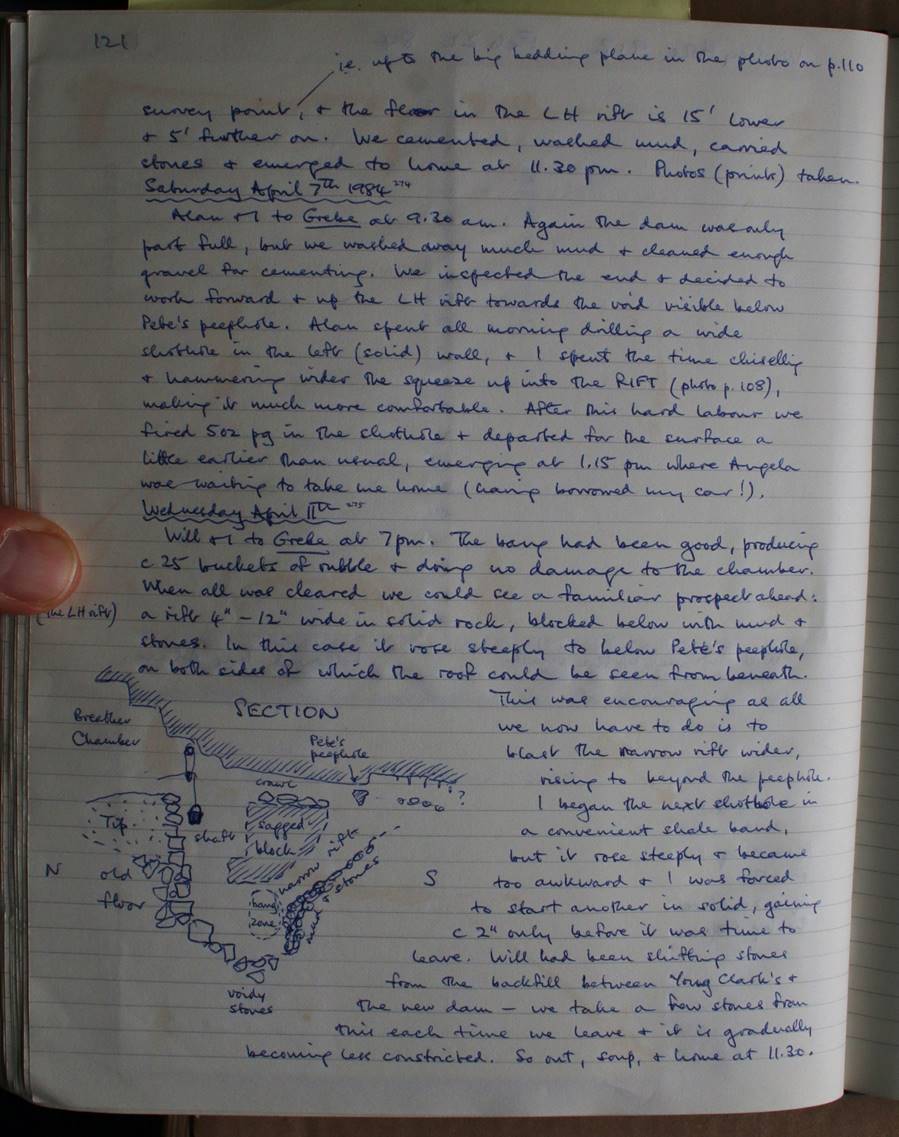 121
i.e. up to the big bedding plane in the photo on p.110
survey point, & the floor in the LH rift is 15' lower
& 5' further on. We cemented, washed mud, carried
stones & emerged to home at 11.30 pm. Photos (prints) taken.
Saturday April 7th 1984 274
Alan & I to Grebe at 9.30 am. Again the dam was only
part full, but we washed away much mud & cleaned enough
gravel for cementing. We inspected the end & decided to
work forward & up the LH rift towards the void visible below
Pete's peephole. Alan spent all morning drilling a wide
shothole in the left (solid) wall, & I spent the time chiselling
& hammering wider the squeeze up into the RIFT (photo p.108),
making it much more comfortable. After this hard labour we
fired 5oz pg in the shothole & departed for the surface a
little earlier than usual, emerging at 1.15 pm where Angela
was waiting to take me home (having borrowed my car!).
Wednesday April 11th 275
Will & I to Grebe at 7pm. The bang had been good, producing
c.25 buckets of rubble & doing no damage to the chamber.
When all was cleared we could see a familiar prospect ahead:
(the LH rift) a rift 4" - 12" wide in solid rock, blocked below with mud &
stones. In this case it rose steeply to below Pete's peephole,
on both sides of which the roof could be seen from beneath.
This was encouraging as all
we now have to do is to
blast the narrow rift wider,
rising to beyond the peephole.
I began the next shothole in
a convenient shale band,
but it rose steeply & became
too awkward & I was forced
to start another in solid, gaining
c 2" only before it was time to
leave. Will had been shifting stones
from the backfill between Young Clark's &
the new dam – we take a few stones from
this each time we leave & it is gradually
becoming less constricted. So out, soup, & home at 11.30.
SECTION
Breather
Chamber
Pete's
peephole
crawl
?
Tip
shaft
sagged
block
narrow rift
N
old
floor
bang
zone
mud & stones
S
voidy
stones